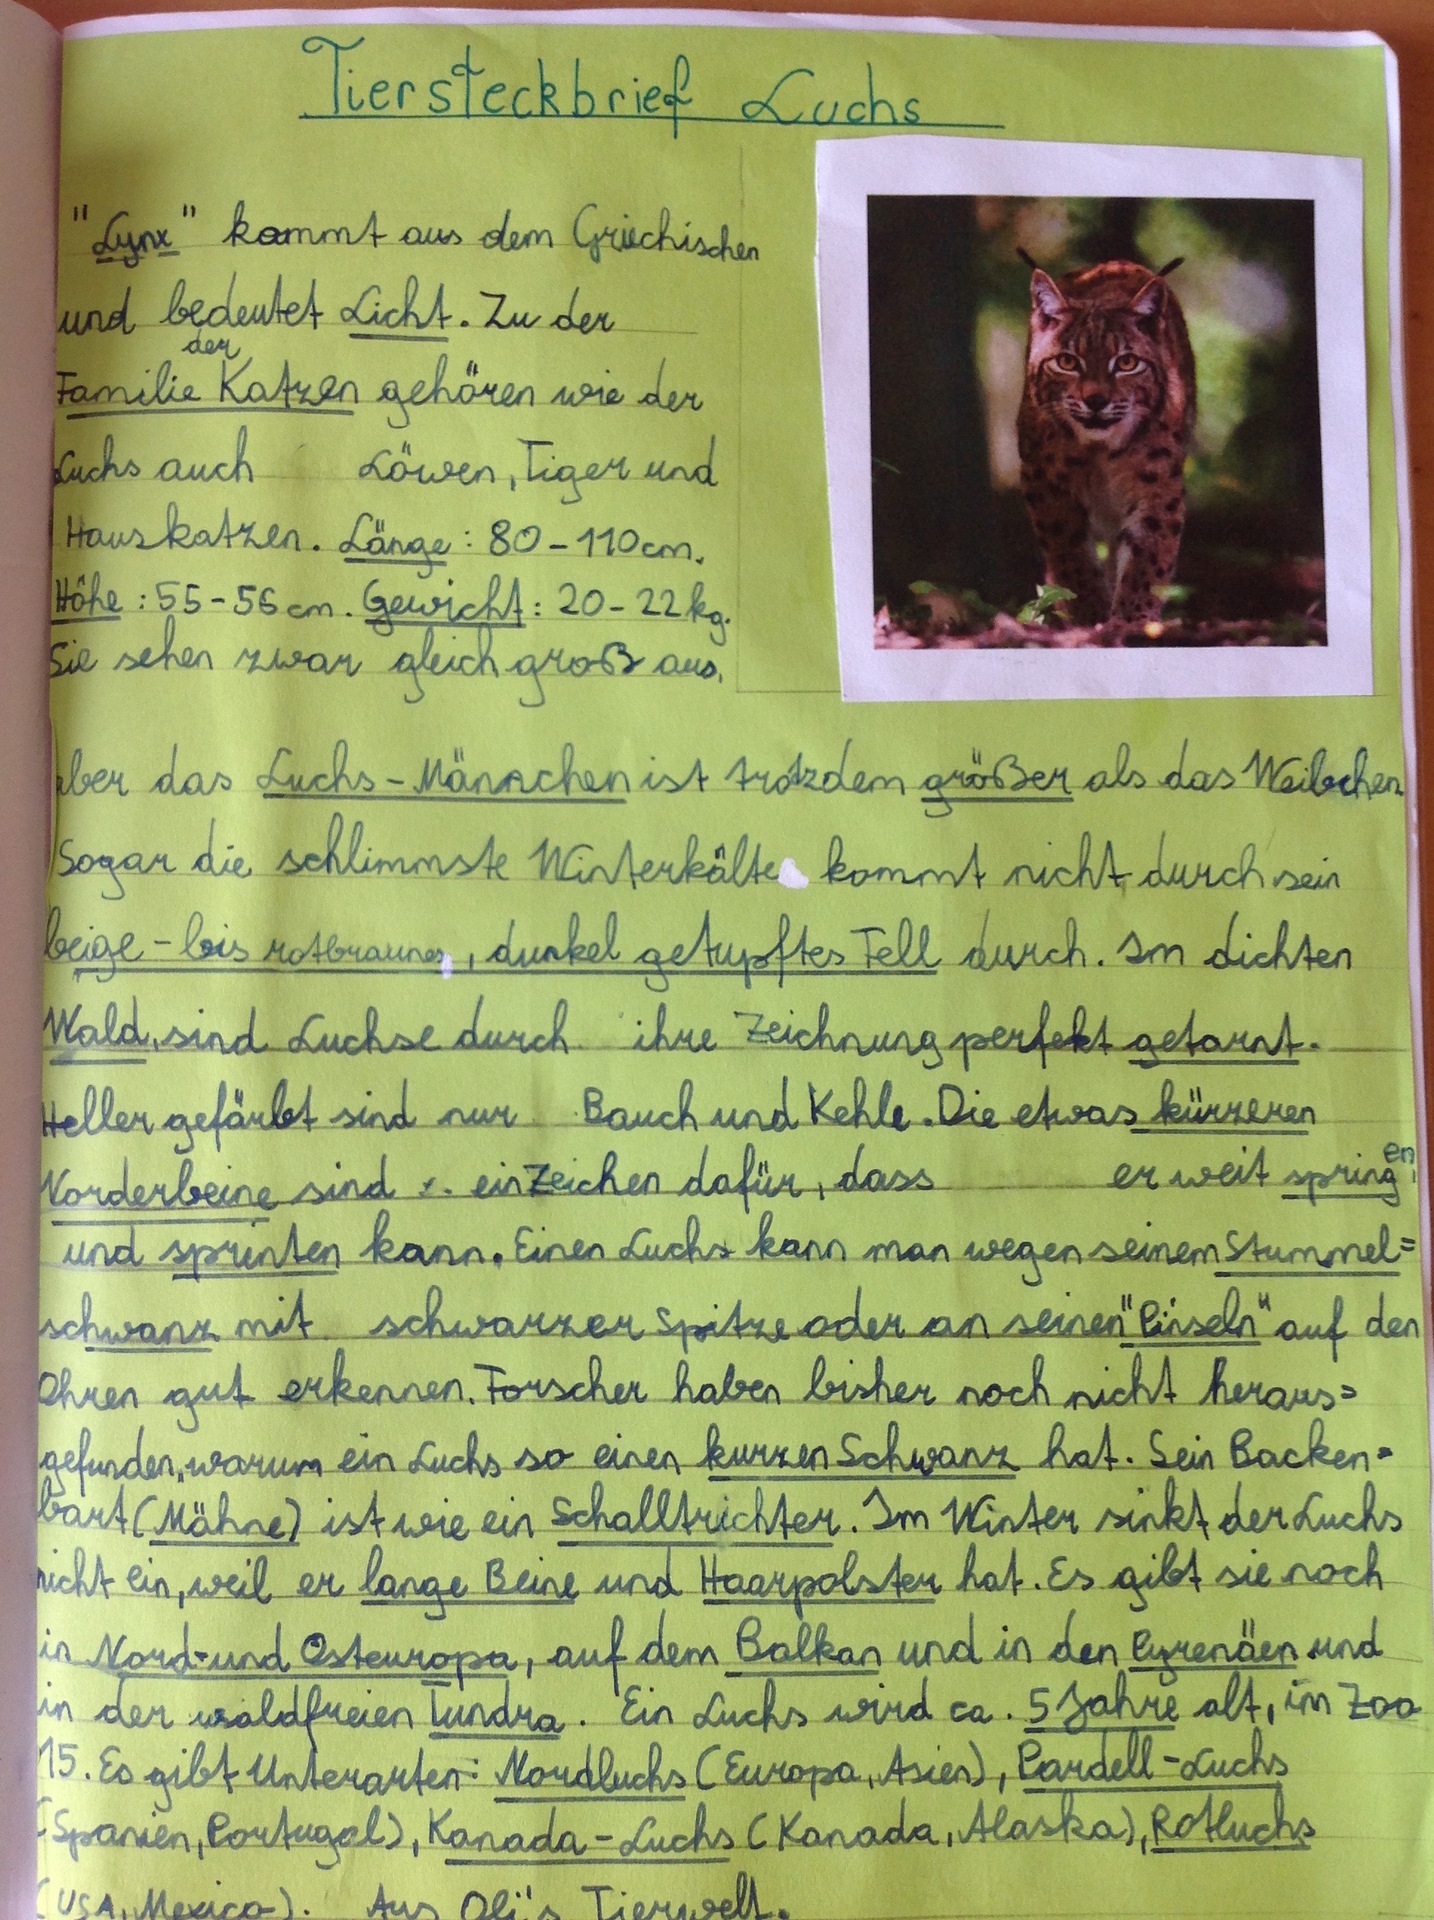 Tiersteckbrief Luchs
"Lynx" kommt aus dem Griechischen
und bedeutet Licht. Zu der
der
Familie Katzen gehören wie der
Luchs auch Löwen, Tiger und
Hauskatzen. Länge: 80-110cm.
Höhe: 55-56cm. Gewicht: 20-22kg.
Sie sehen zwar gleich groß aus,
aber das Luchs-Männchen ist trotzdem größer als das Weibchen
Sogar die schlimmste Winterkälte kommt nicht durch sein
beige-bis rotbraunes, dunkel getupftes Fell durch. Im dichten
Wald, sind Luchse durch ihre Zeichnung perfekt getarnt.
Heller gefärbt sind nur Bauch und Kehle. Die etwas kürzeren
Vorderbeine sind ein Zeichen dafür, dass er weit springen,
und sprinten kann. Einen Luchs kann man wegen seinem Stummel=
schwanz mit schwarzer Spitze oder an seinen "Pinseln" auf den
Ohren gut erkennen. Forscher haben bisher noch nicht heraus=
gefunden, warum ein Luchs so einen kurzen Schwanz hat. Sein Backen=
bart (Mähne) ist wie ein Schalltrichter. Im Winter sinkt der Luchs
nicht ein, weil er lange Beine und Haarpolster hat. Es gibt sie noch
in Nord-und Osteuropa, auf dem Balkan und in den Pyrenäen und
in der waldfreien Tundra. Ein Luchs wird ca. 5 Jahre alt, im Zoo
15. Es gibt Unterarten: Nordluchs (Europa, Asien), Pardell-Luchs
(Spanien, Portugal), Kanada-Luchs (Kanada, Alaska), Rotluchs
(USA, Mexico). Aus Oli's Tierwelt.